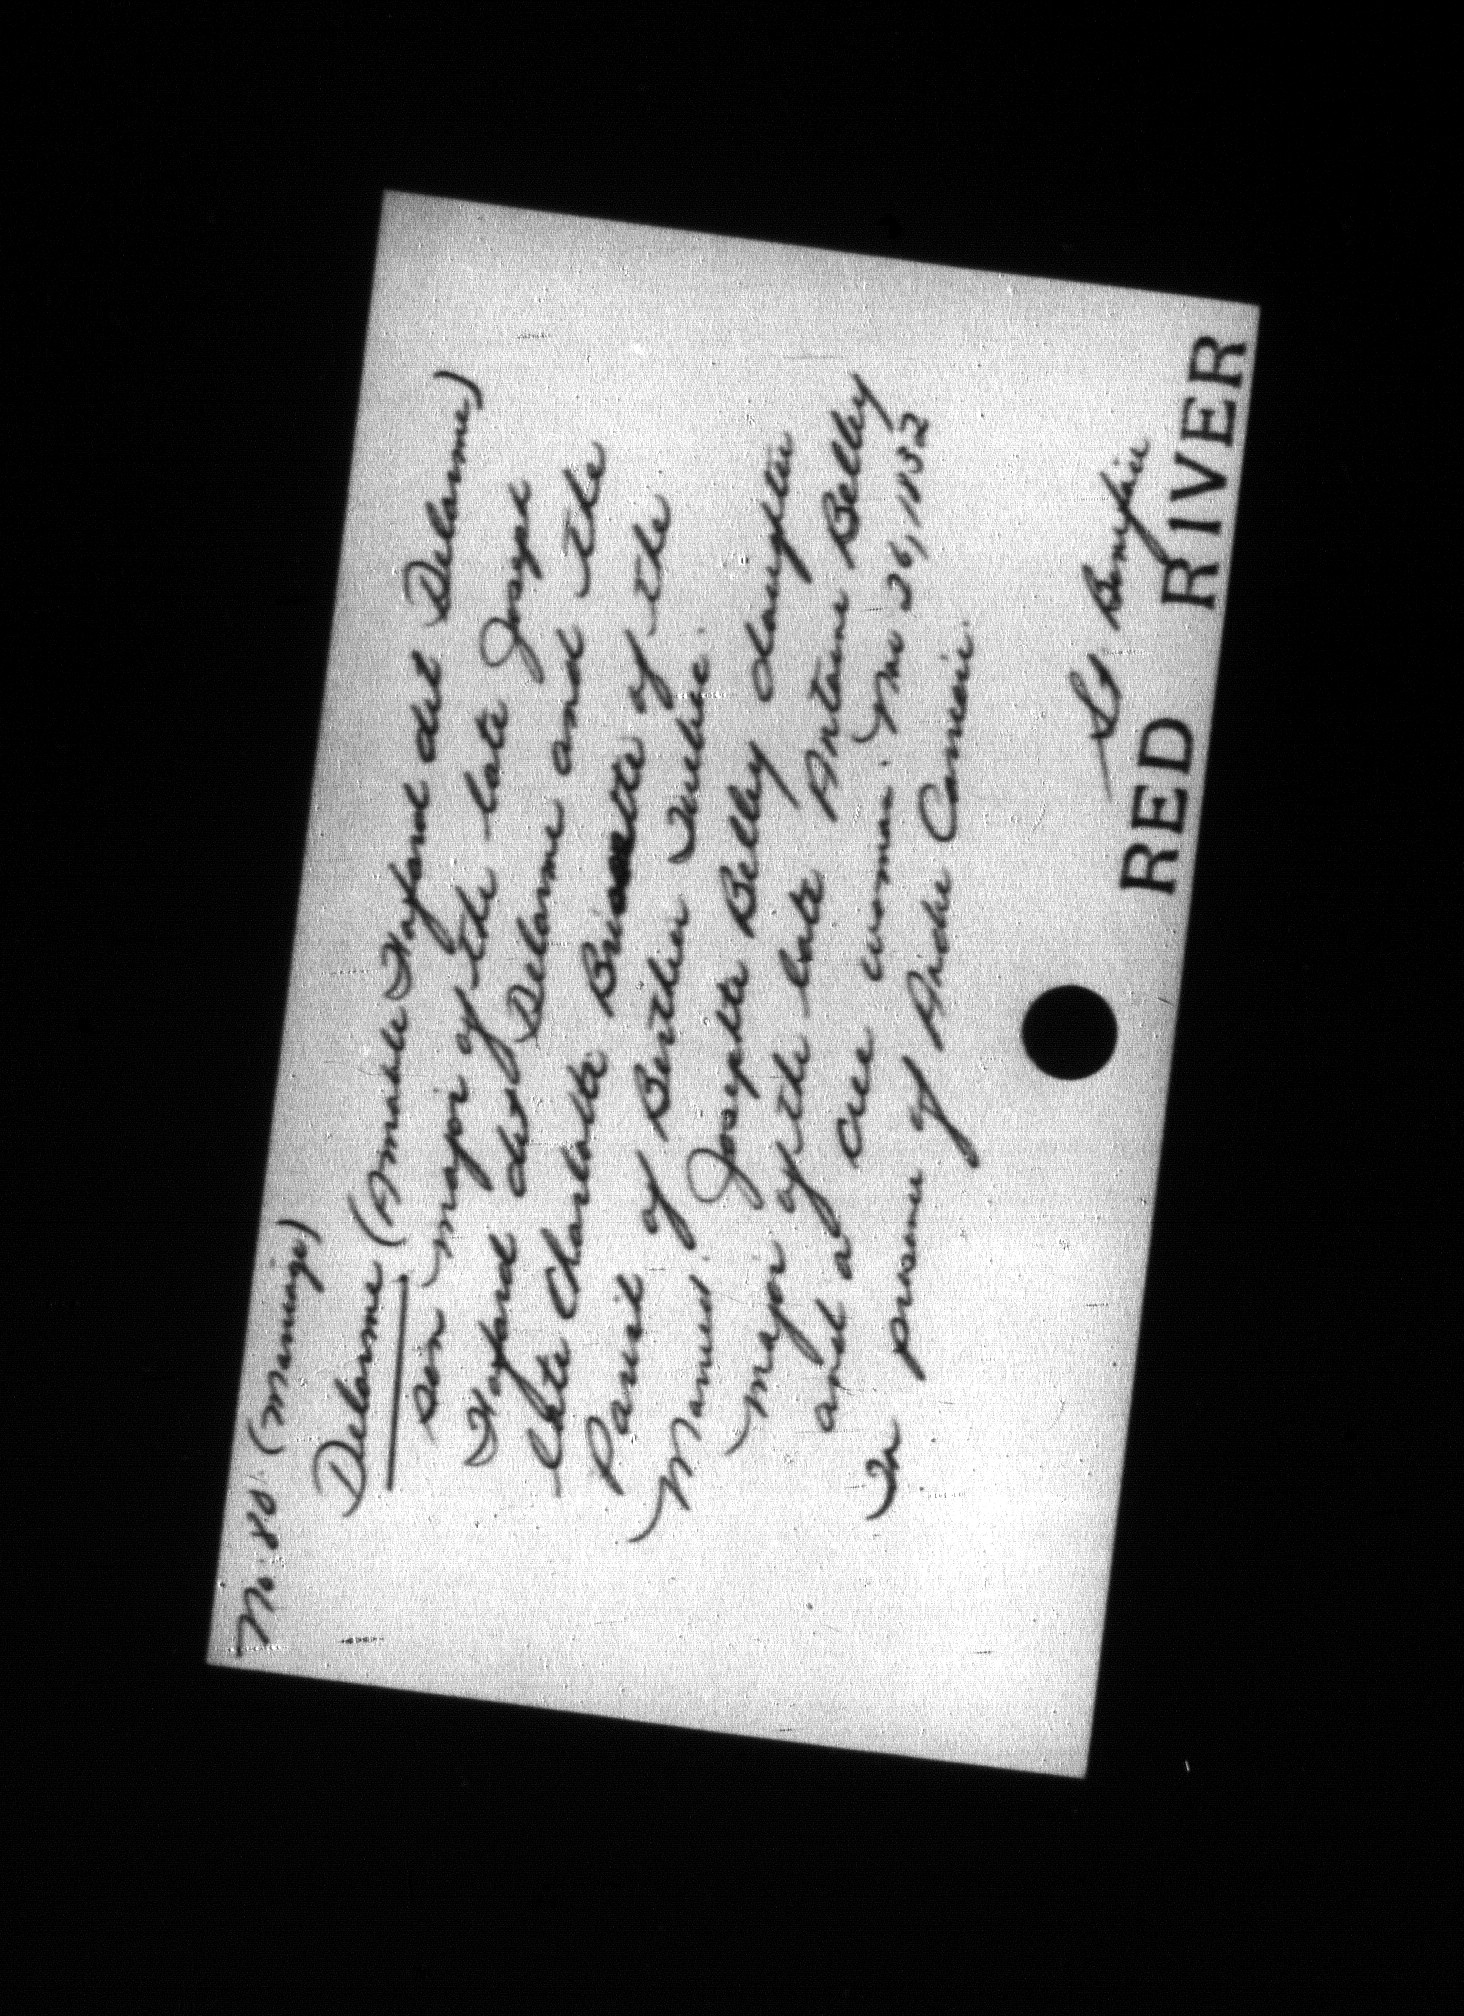 No. 80 (Marriage)
Delorme (Amable Hayfard dit Delorme)
son major of the late Joseph
Hayfard dit Delorme and the
late Charlotte of the
Parish of Berthier Quebec.
Married Josephte Belley daughter
major of the late Antoine Belley
and a Cree woman. 26, 1832
In presence of
St Boniface
RED RIVER